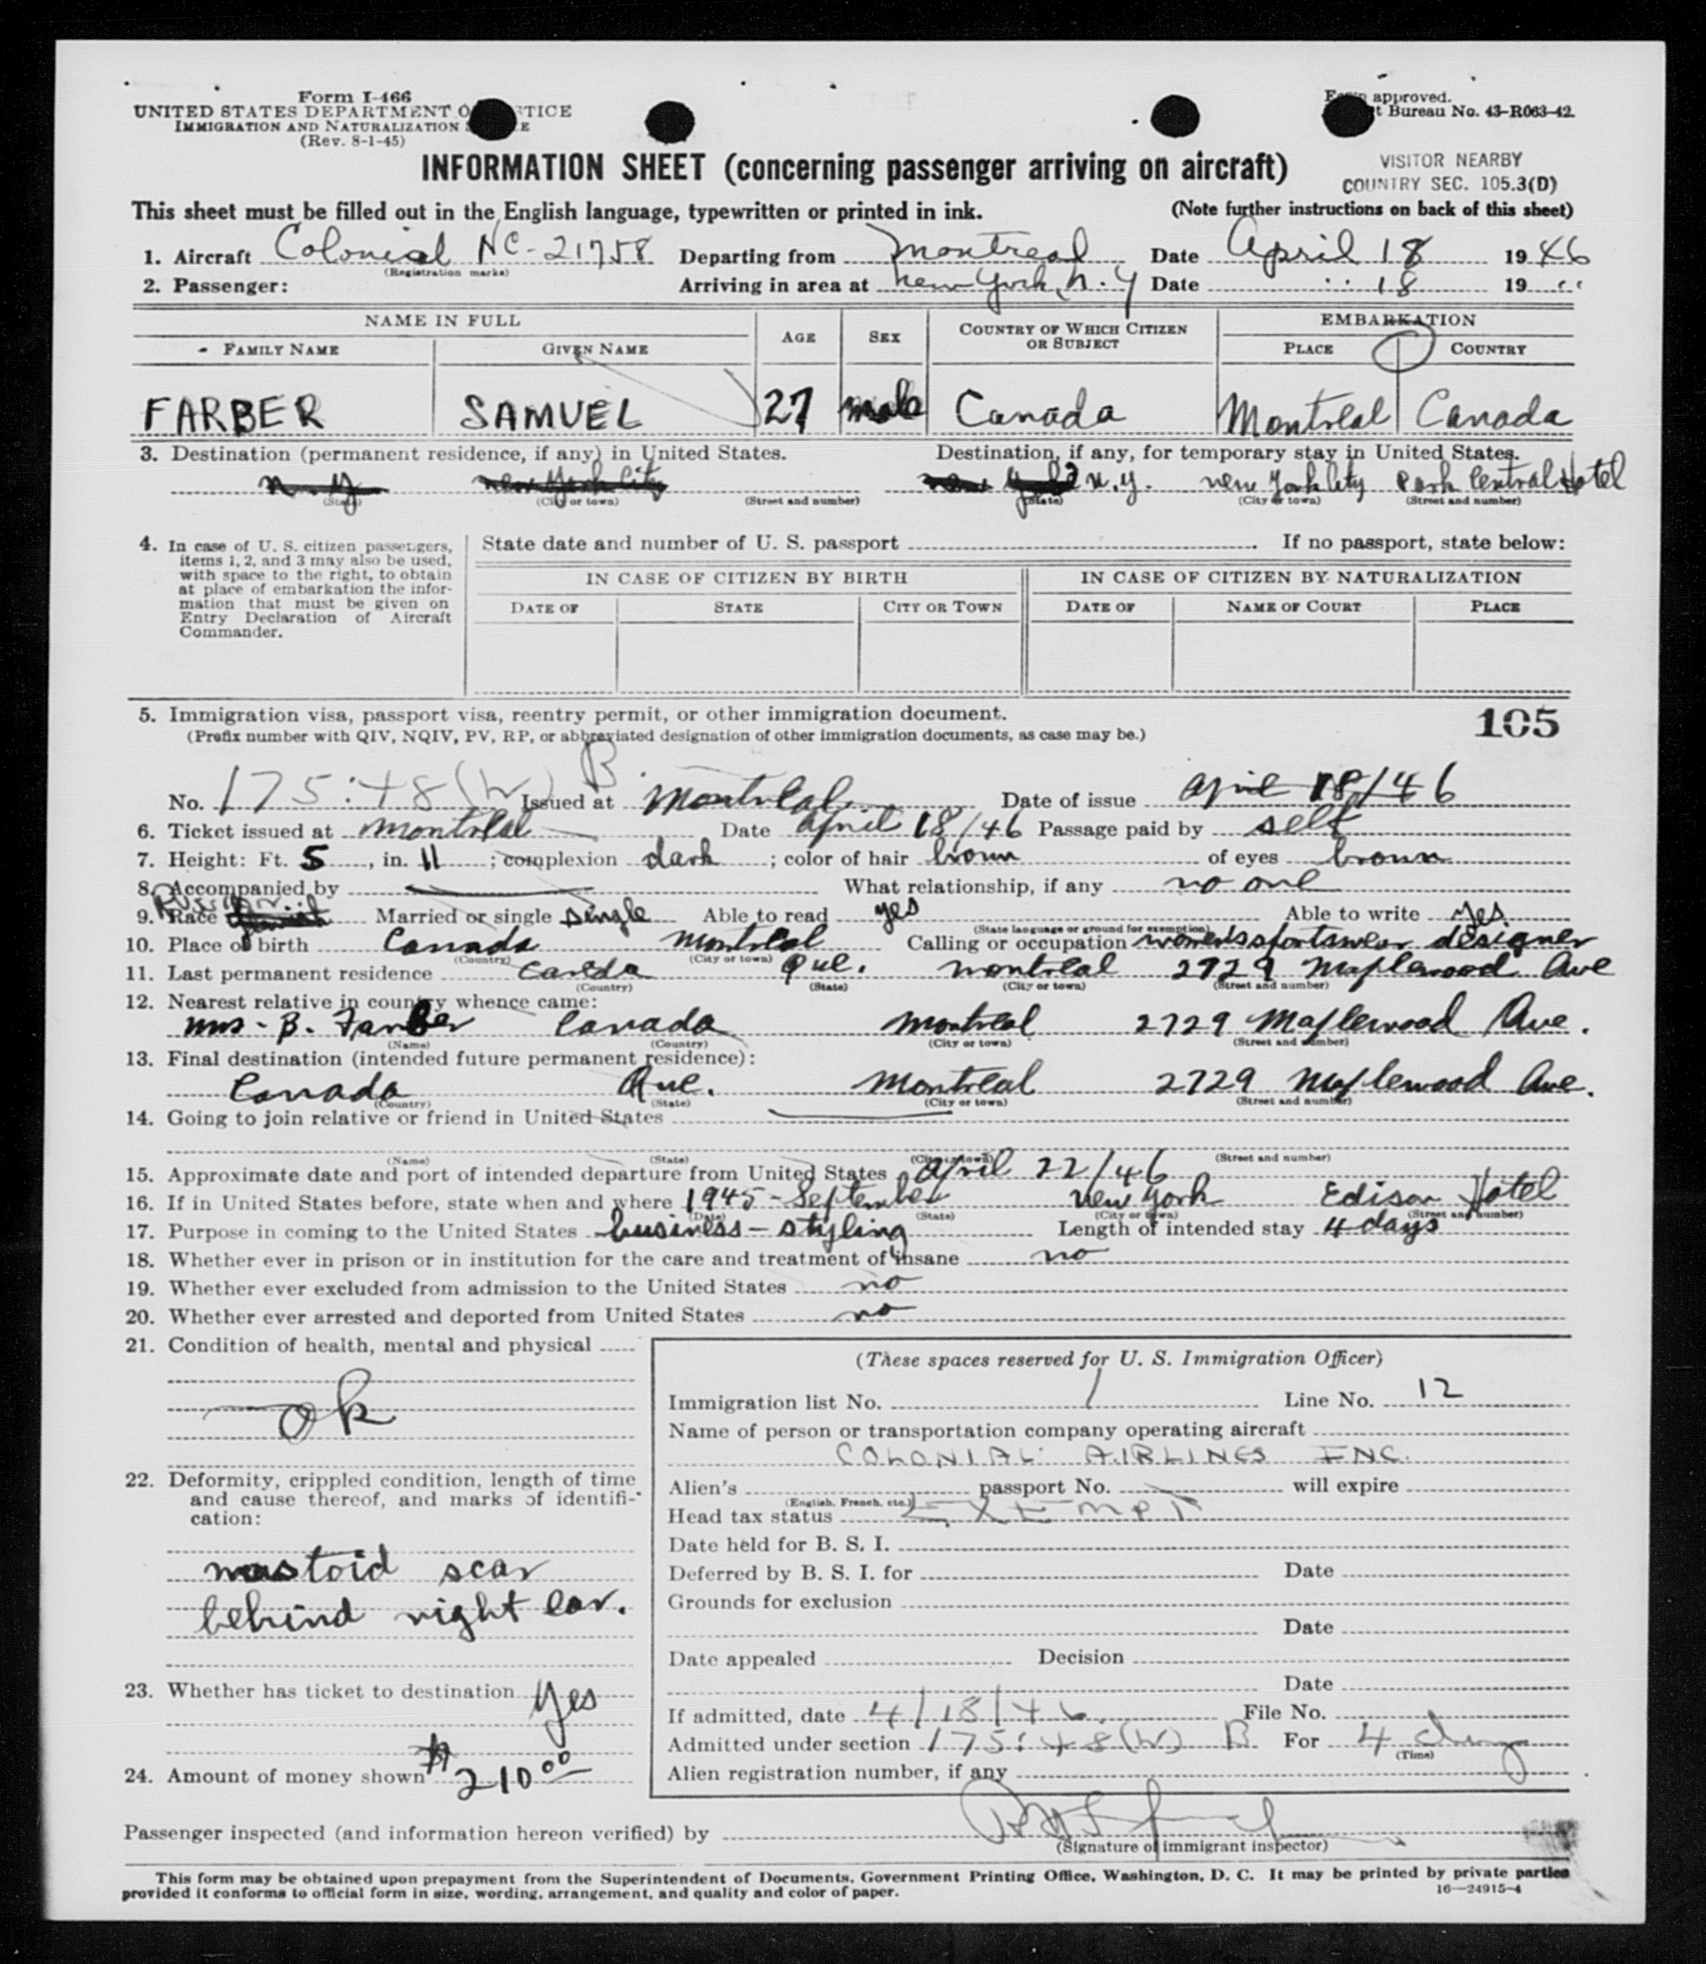 Form I-466
UNITED STATES DEPARTMENT O TICE
IMMIGRATION AND NATURALIZATION S E
(Rev. 8-1-45)
approved.
t Bureau No. 43-R063-42.
INFORMATION SHEET (concerning passenger arriving on aircraft)
VISITOR NEARBY
COUNTRY SEC. 105.3(D)
This sheet must be filled out in the English language, typewritten or printed in ink. (Note further instructions on back of this sheet)
1. Aircraft Colonial NC-21758 Departing from Montreal Date April 18 1946
(Registration marks)
2. Passenger: Arriving in area at New York, N.Y Date " 18 19 "
NAME IN FULL AGE SEX COUNTRY OF WHICH CITIZEN OR SUBJECT EMBARKATION
FAMILY NAME GIVEN NAME PLACE COUNTRY
FARBER SAMUEL 27 male Canada Montreal Canada
3. Destination (permanent residence, if any) in United States. Destination, if any, for temporary stay in United States.
N.Y New York City N.Y. New York City Park Central Hotel
(State) (City or town) (Street and number) (State) (City or town) (Street and number)
4. In case of U. S. citizen passengers, items 1, 2, and 3 may also be used, with space to the right, to obtain at place of embarkation the information that must be given on Entry Declaration of Aircraft Commander.
State date and number of U. S. passport . If no passport, state below:
IN CASE OF CITIZEN BY BIRTH IN CASE OF CITIZEN BY NATURALIZATION
DATE OF STATE CITY OR TOWN DATE OF NAME OF COURT PLACE
5. Immigration visa, passport visa, reentry permit, or other immigration document. 105
(Prefix number with QIV, NQIV, PV, RP, or abbreviated designation of other immigration documents, as case may be.)
No. 175:48(W) B Issued at Montreal Date of issue April 18/46
6. Ticket issued at Montreal Date April 18/46 Passage paid by self
7. Height: Ft. 5, in. 11; complexion dark; color of hair brown of eyes brown
8. Accompanied by What relationship, if any no one
9. Race Russian Married or single single Able to read yes Able to write yes
(State language or ground for exemption)
10. Place of birth Canada Montreal Calling or occupation women's sportswear designer
(Country) (City or town)
11. Last permanent residence Canada Que. Montreal 2729 Maplewood Ave
(Country) (State) (City or town) (Street and number)
12. Nearest relative in country whence came:
Mrs. B. Farber Canada Montreal 2729 Maplewood Ave.
(Name) (Country) (City or town) (Street and number)
13. Final destination (intended future permanent residence):
Canada Que. Montreal 2729 Maplewood Ave.
(Country) (State) (City or town) (Street and number)
14. Going to join relative or friend in United States
(Name) (State) (City or town) (Street and number)
15. Approximate date and port of intended departure from United States April 22/46
16. If in United States before, state when and where 1945 - September New York Edison Hotel
(Date) (State) (City or town) (Street and number)
17. Purpose in coming to the United States business - styling Length of intended stay 4 days
18. Whether ever in prison or in institution for the care and treatment of insane no
19. Whether ever excluded from admission to the United States no
20. Whether ever arrested and deported from United States no
21. Condition of health, mental and physical
ok
22. Deformity, crippled condition, length of time and cause thereof, and marks of identification:
mastoid scar
behind right ear.
23. Whether has ticket to destination yes
24. Amount of money shown $210 00
(These spaces reserved for U. S. Immigration Officer)
Immigration list No. 1 Line No. 12
Name of person or transportation company operating aircraft
COLONIAL AIRLINES INC.
Alien's passport No. will expire
(English, French, etc.)
Head tax status EXEMPT
Date held for B. S. I.
Deferred by B. S. I. for Date
Grounds for exclusion
Date
Date appealed Decision
Date
If admitted, date 4/18/46. File No.
Admitted under section 175:48(W) B For 4 days
(Time)
Alien registration number, if any
Passenger inspected (and information hereon verified) by
(Signature of immigrant inspector)
This form may be obtained upon prepayment from the Superintendent of Documents, Government Printing Office, Washington, D. C. It may be printed by private parties
provided it conforms to official form in size, wording, arrangement, and quality and color of paper. 16—24915-4